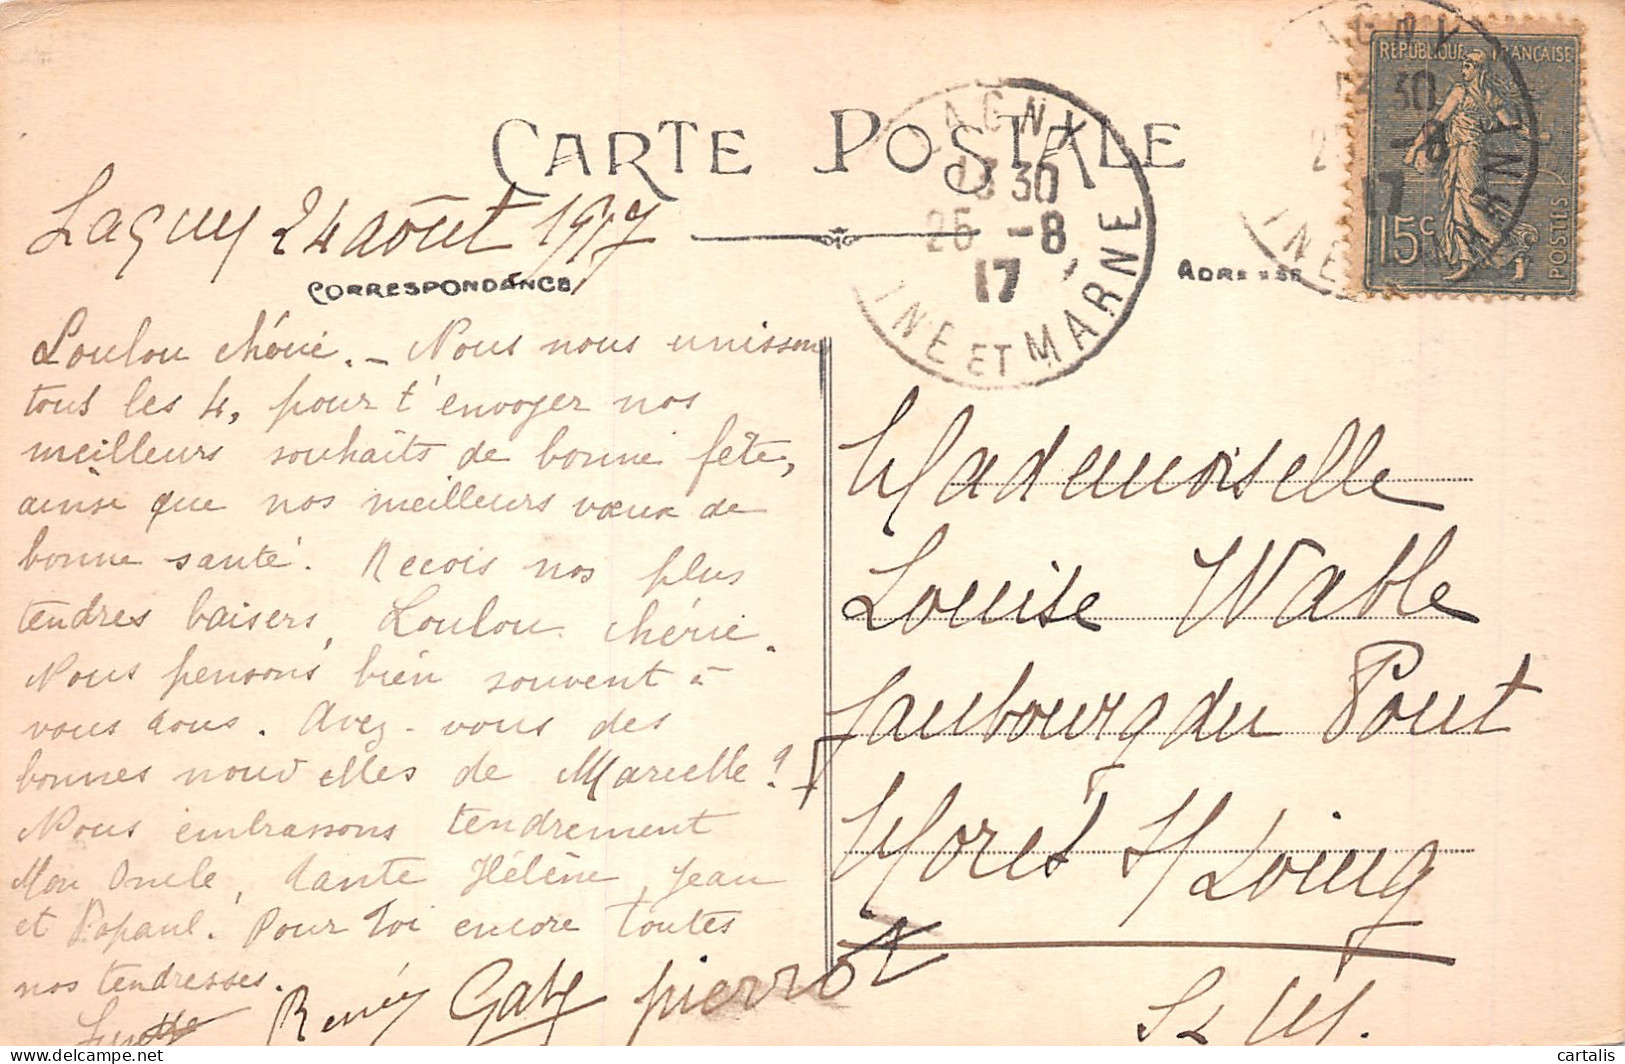 CARTE POSTALE
Lagny 24 août 1917
CORRESPONDANCE
Loulou chérie. _ Nous nous unissons
tous les 4, pour t'envoyer nos
meilleurs souhaits de bonne fête,
ainsi que nos meilleurs vœux de
bonne santé. Reçois nos plus
tendres baisers, Loulou chérie.
Nous pensons bien souvent à
vous tous. Avez-vous des
bonnes nouvelles de Marcelle?
Nous embrassons tendrement
Mon Oncle, tante Hélène, Jean
et Popaul. Pour toi encore toutes
nos tendresses.
René Gaby Pierrot
LAGNY
13 30
25 -8
17
INE ET MARNE
AGNY
13 30
-8
17
INE MARNE
REPUBLIQUE FRANÇAISE
15c
POSTES
ADRESSE
Mademoiselle
Louise Wable
faubourg du Pont
Moret s/ Loing
S et M.
cartalis